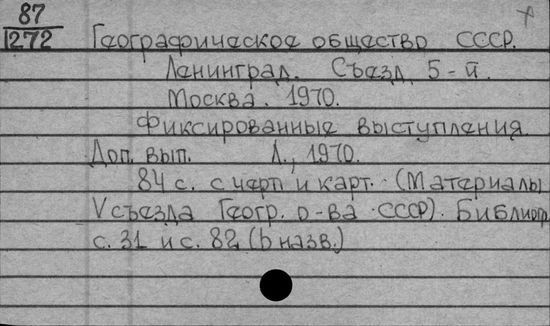 87
1272
Географическое общество СССР.
Ленинград. Съезд 5-й.
Москва. 1970.
Фиксированные выступления.
Доп. вып. Л., 1970.
84 с. с черт и карт. (Материалы
V съезда Геогр. о-ва СССР). Библиогр
с. 31 и с. 82 (6 назв.)